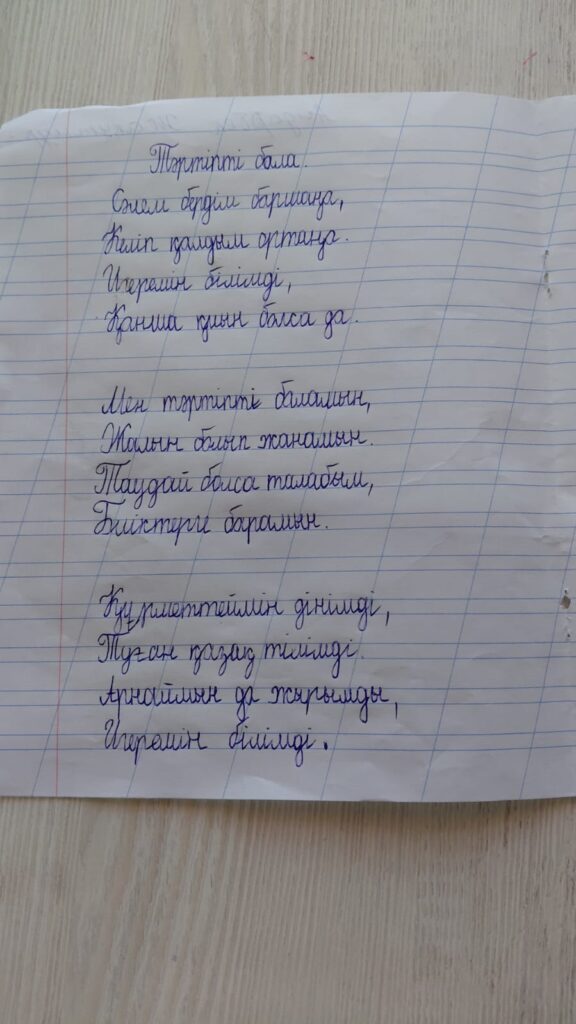 Тәртіпті бала.
Сәлем бердім баршаңа,
Келіп қалдым ортаңа.
Игеремін білімді,
Қанша қиын болса да.
Мен тәртіпті баламын,
Жалын болып жанамын.
Таудай болса талабым,
Биіктерге барамын.
Құрметтеймін дінімді,
Туған қазақ тілімді.
Арнаймын да жырымды,
Игеремін білімді.